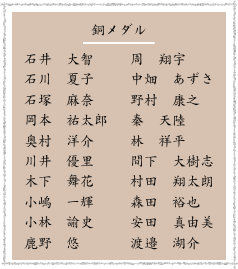 銅メダル
石井 大智 周 翔宇
石川 夏子 中畑 あずさ
石塚 麻奈 野村 康之
岡本 祐太郎 秦 天陸
奥村 洋介 林 祥平
川井 優里 間下 大樹志
木下 舞花 村田 翔太朗
小嶋 一輝 森田 裕也
小林 諭史 安田 真由美
鹿野 悠 渡邉 湖介